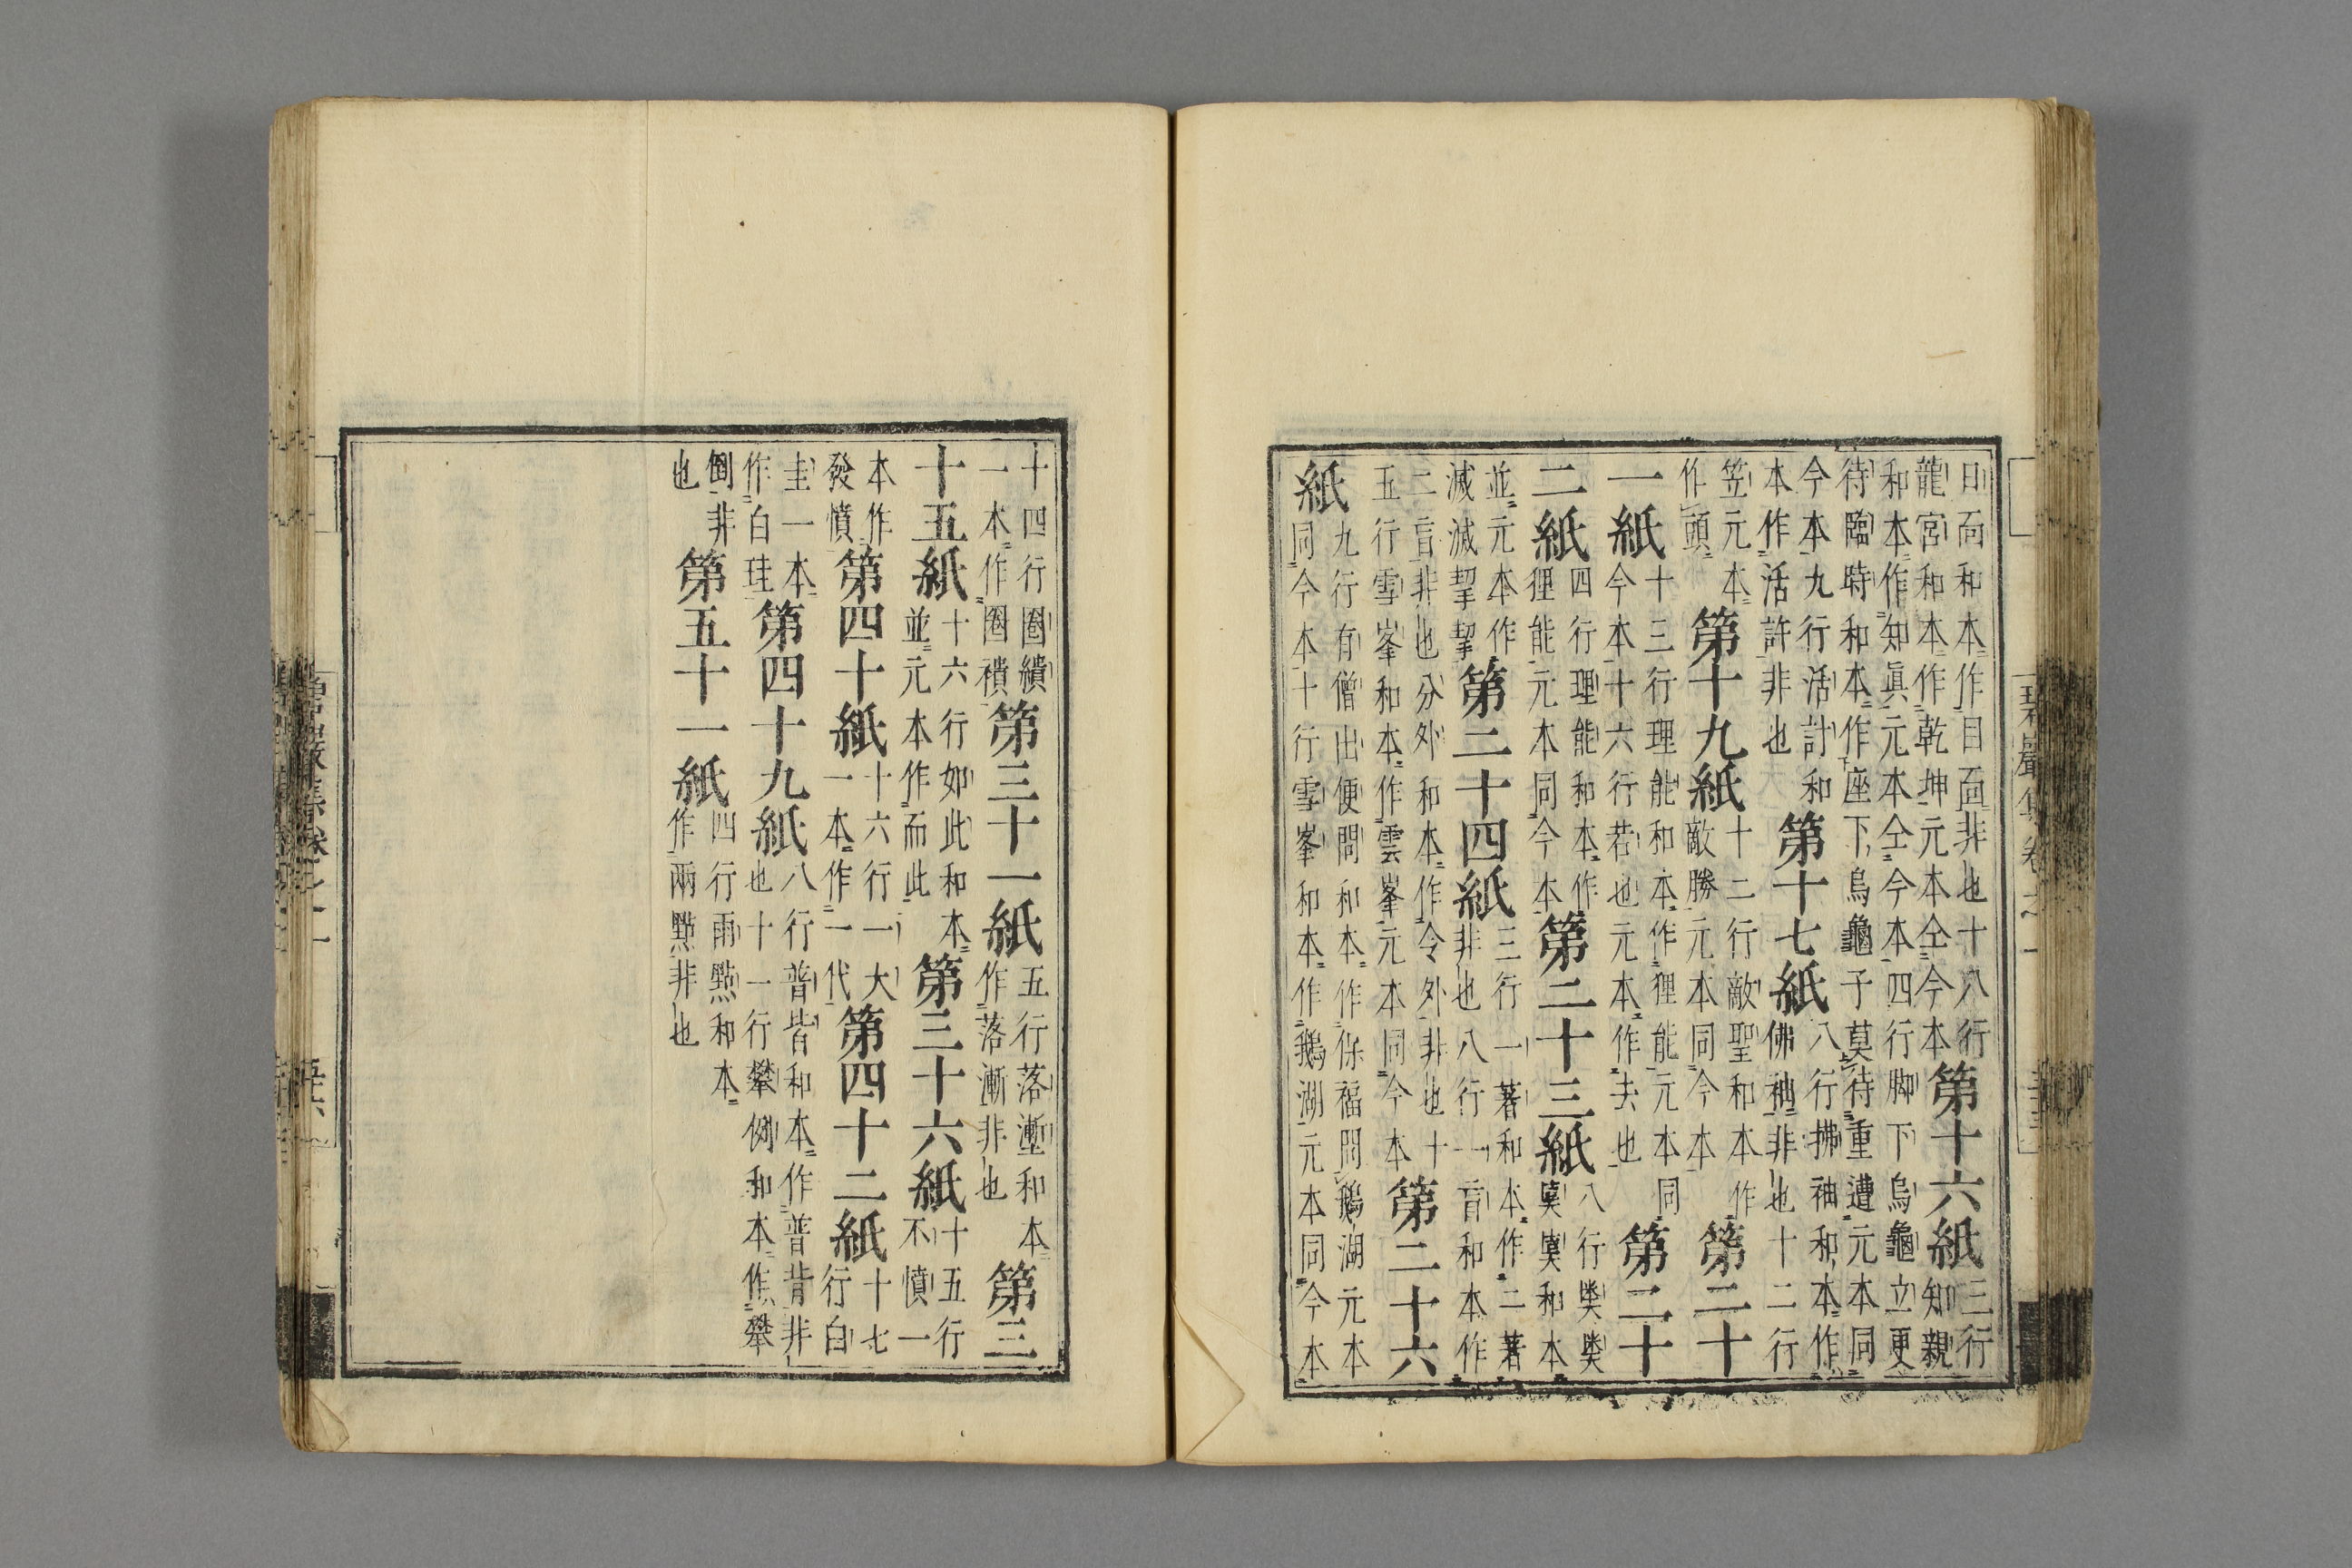 日面和本作目面非也十八行第十六紙三行
龍宮和本作乾坤元本仝今本知親
和本作知眞元本仝今本四行脚下烏龜立更
待臨時和本作座下烏龜子莫待重遭元本同
今本九行活計和第十七紙八行拂袖和本作
本作活許非也佛袖非也十二行
笠元本第十九紙十二行敵聖和本作第二十
作頭敵勝元本同今本
一紙十三行理能和本作狸能元本同第二十
今本十六行若也元本作去也
二紙四行理能和本作第二十三紙八行㘽㘽
狸能元本同今本㝠㝠和本
並元本作第二十四紙三行一著和本作二著
滅滅挈挈非也八行一盲和本作
二盲非也分外和本作令外非也十第二十六
五行雪峯和本作雲峯元本同今本
紙九行有僧出便問和本作保福問鵝湖元本
同今本十行雪峯和本作鵝湖元本同今本
碧巖集卷之一
十四行圈繢第三十一紙五行落壍和本第三
一本作圈䙡作落漸非也
十五紙十六行如此和本第三十六紙十五行
並元本作而此不憤一
本作第四十紙十六行一大第四十二紙十七
發憤一本作一代行白
圭一本第四十九紙八行普皆和本作普背非
作白珪也十一行攀例和本作攀
倒非第五十一紙四行雨點和本
也作兩點非也